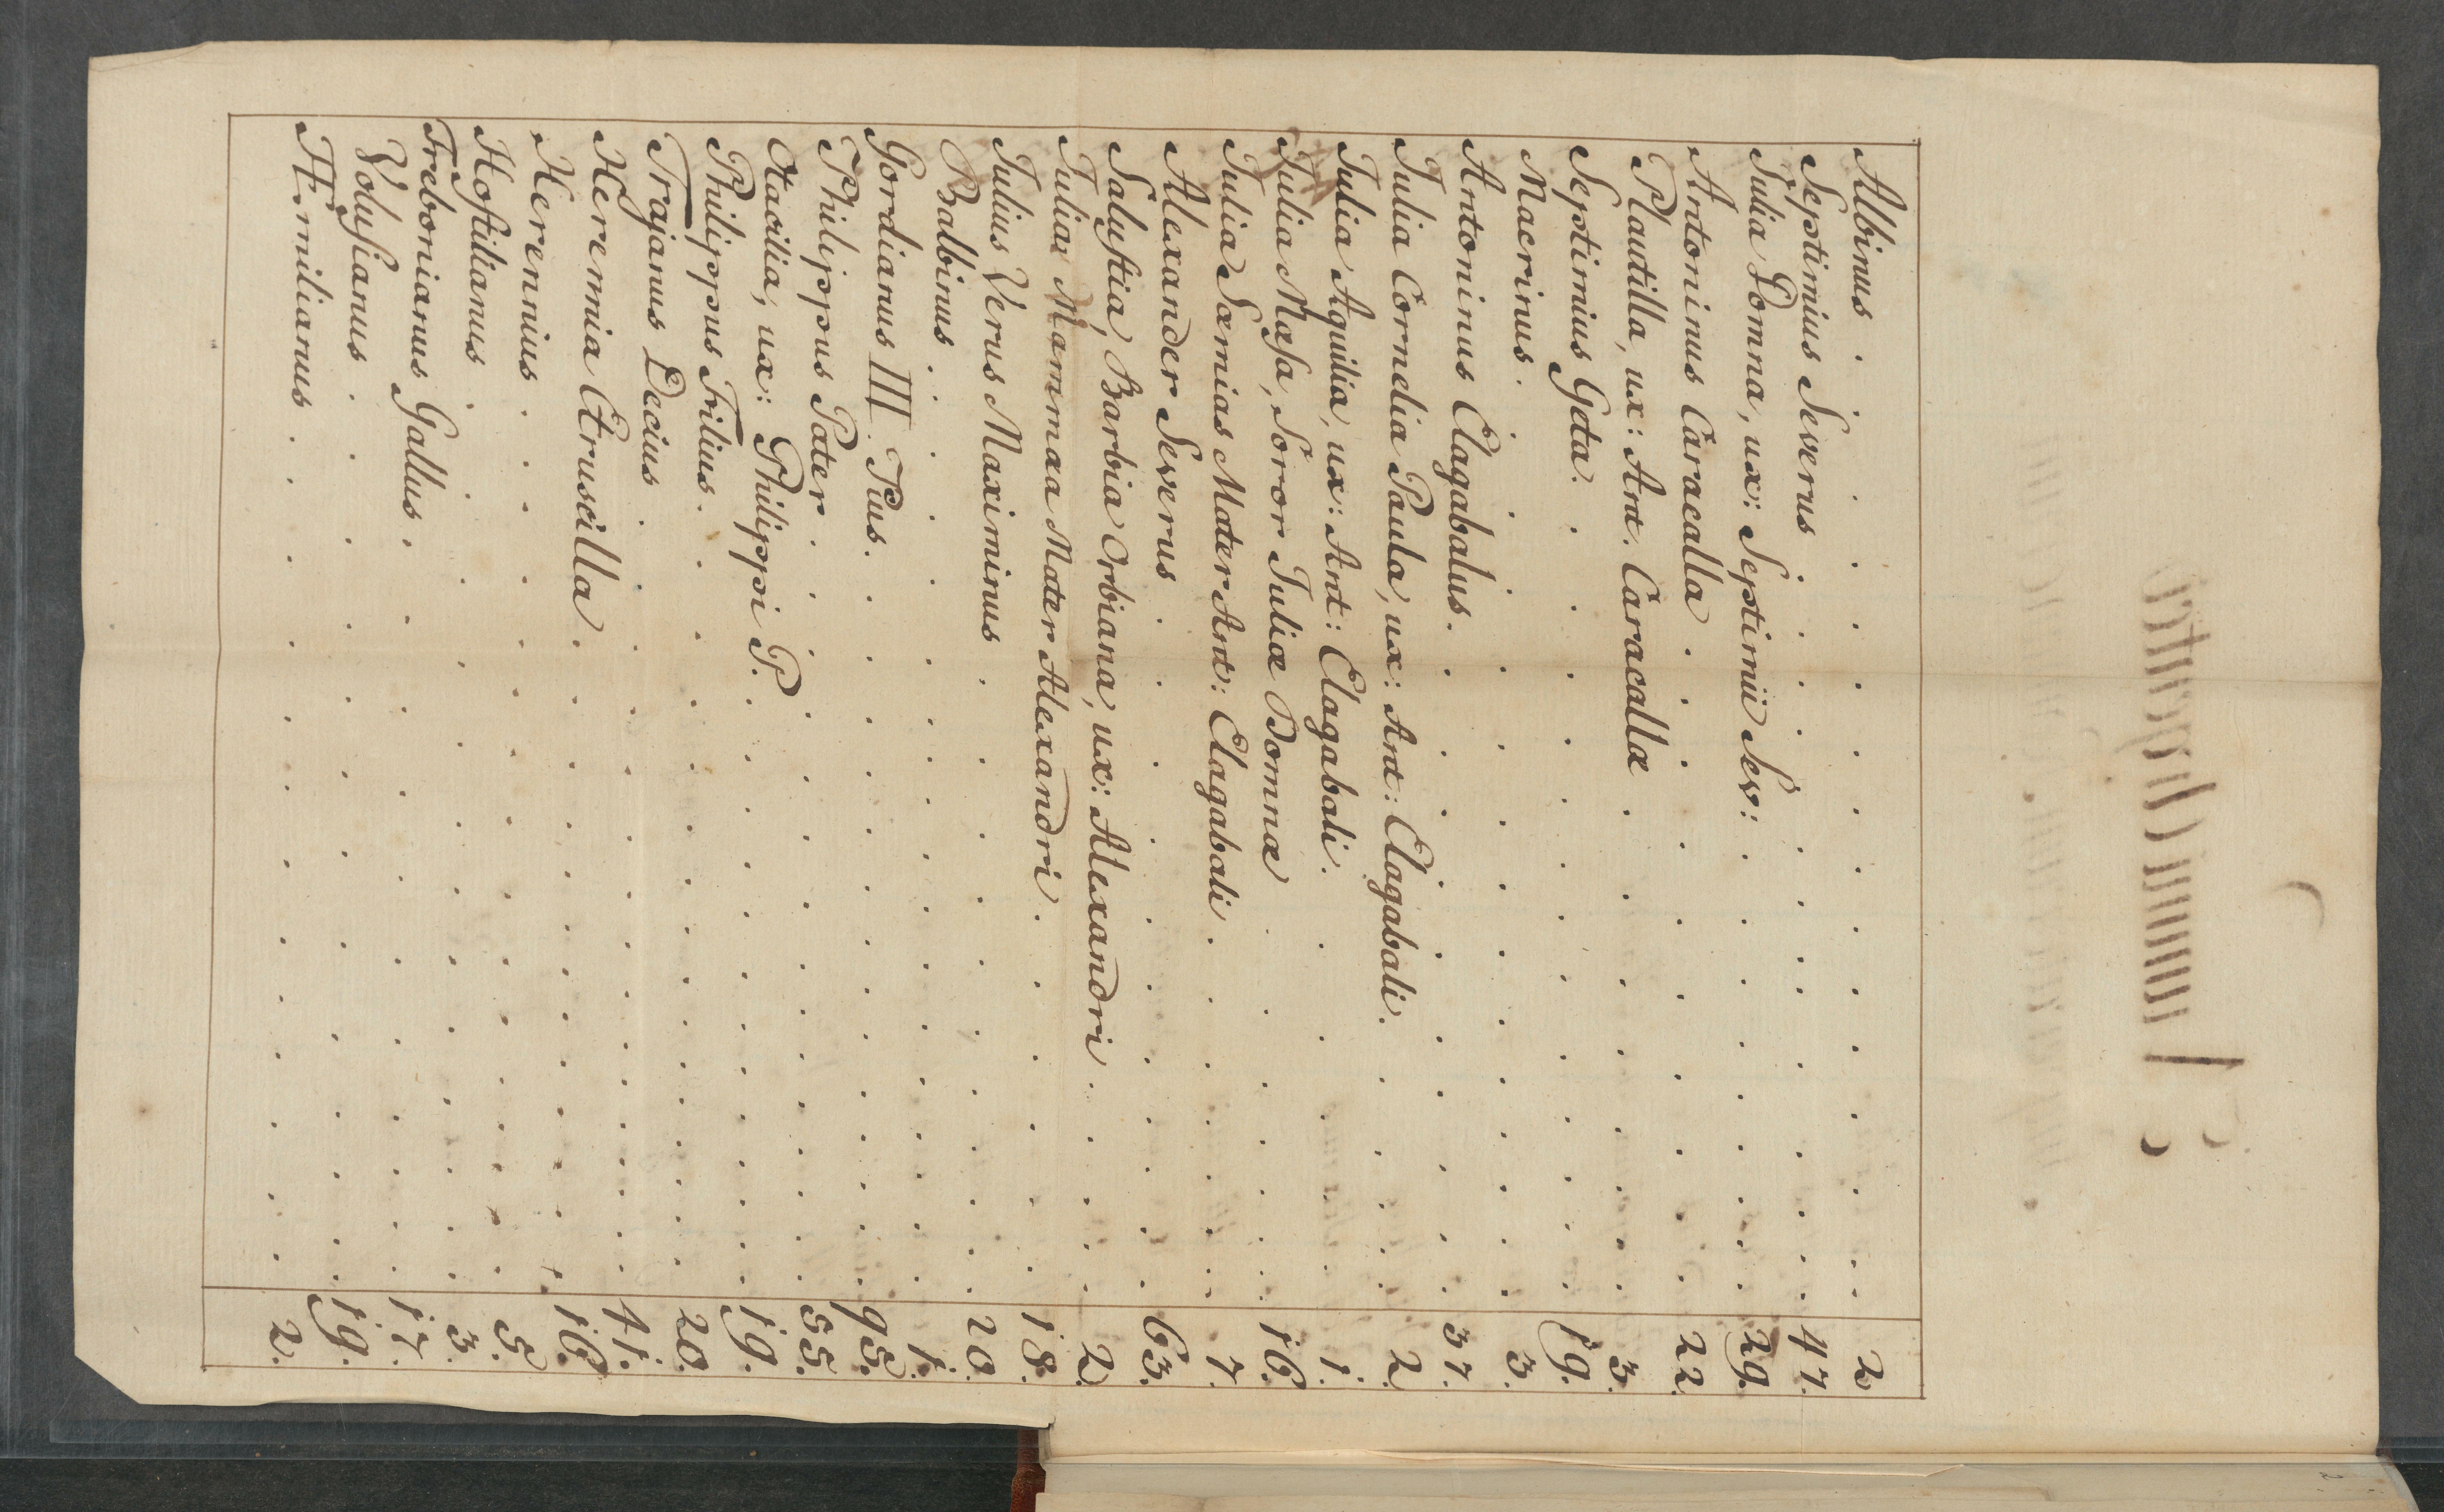 Albinus . . . . . . . . . . . . . 2
Septimius Severus . . . . . . . . . . 47.
Julia Domna, ux: Septimii Sev: . . . . . . . 29.
Antoninus Caracalla . . . . . . . . . . 22.
Plautilla, ux: Ant. Caracallæ . . . . . . . . 3.
Septimius Geta . . . . . . . . . . . 19.
Macrinus . . . . . . . . . . . . 3.
Antoninus Elagabalus . . . . . . . . . 37.
Julia Cornelia Paula, ux: Ant: Elagabali . . . . . 2
Julia Aquilia, ux: Ant: Elagabali . . . . . . 1.
Julia Mæsa, Soror Juliæ Domnæ . . . . . . 16.
Julia Sæmias Mater Ant: Elagabali . . . . . . 7.
Alexander Severus . . . . . . . . . . 63.
Salustia, Barbia Orbiana, ux: Alexandri . . . . . 2.
Julia Mammæa Mater Alexandri . . . . . . 18.
Julius Verus Maximinus . . . . . . . . 20.
Balbinus . . . . . . . . . . . . 1.
Gordianus III. Pius . . . . . . . . . . 95.
Philippus Pater . . . . . . . . . . . 55.
Otacilia, ux: Philippi P. . . . . . . . . . 19.
Philippus Filius . . . . . . . . . . . 20.
Trajanus Decius . . . . . . . . . . . 41.
Herennia Etruscilla . . . . . . . . . . 16.
Herennius . . . . . . . . . . . . 5.
Hostilianus . . . . . . . . . . . . 3.
Trebonianus Gallus . . . . . . . . . . 17.
Volusianus . . . . . . . . . . . . 19.
Æmilianus . . . . . . . . . . . . 2.